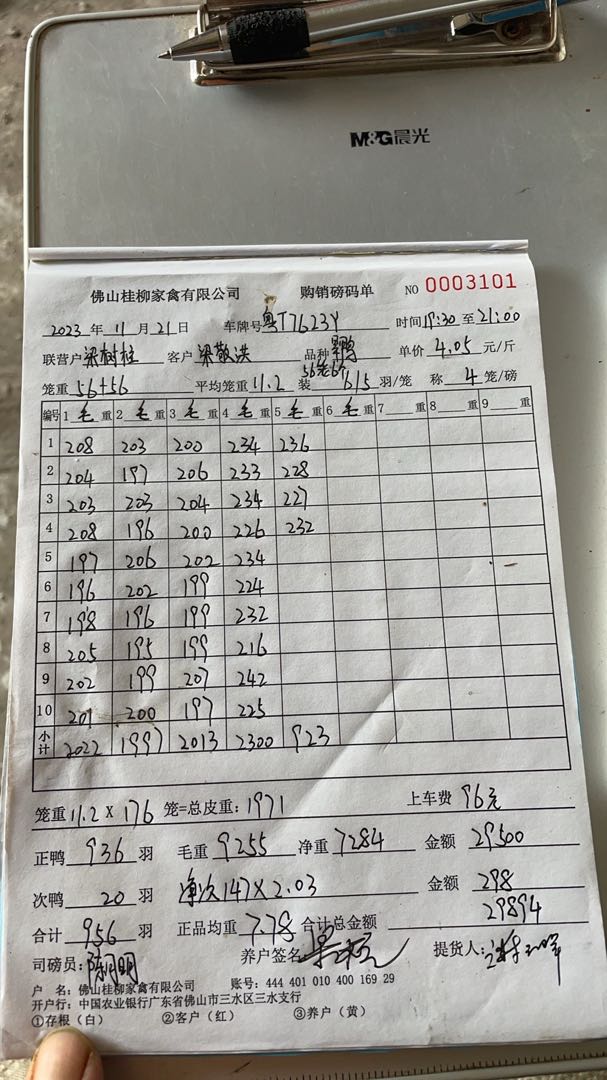 M&G晨光
佛山桂柳家禽有限公司 购销磅码单 NO 0003101
2023 年 11 月 21 日 车牌号 粤T7623Y 时间 19:30 至 21:00
联营户 梁树柱 客户 梁敬洪 品种 鸭 单价 4.05 元/斤
56笼6个
笼重 56+56 平均笼重 11.2 装 6/5 羽/笼 称 4 笼/磅
编号 1 毛 重 2 毛 重 3 毛 重 4 毛 重 5 毛 重 6 毛 重 7 重 8 重 9 重
1 208 203 200 234 236
2 204 197 206 233 228
3 203 203 204 234 227
4 208 196 200 226 232
5 197 206 202 234
6 196 202 199 224
7 198 196 199 232
8 205 195 199 216
9 202 199 207 242
10 201 200 197 225
小计 2022 1997 2013 2300 923
笼重 11.2 X 176 笼=总皮重: 1971 上车费 96元
正鸭 936 羽 毛重 9255 净重 7284 金额 29500
次鸭 20 羽 净次147×2.03 金额 298
合计 956 羽 正品均重 7.78 合计总金额 29894
司磅员: 养户签名 提货人:
户 名: 佛山桂柳家禽有限公司 账号: 444 401 010 400 169 29
开户行: 中国农业银行广东省佛山市三水区三水支行
①存根（白） ②客户（红） ③养户（黄）